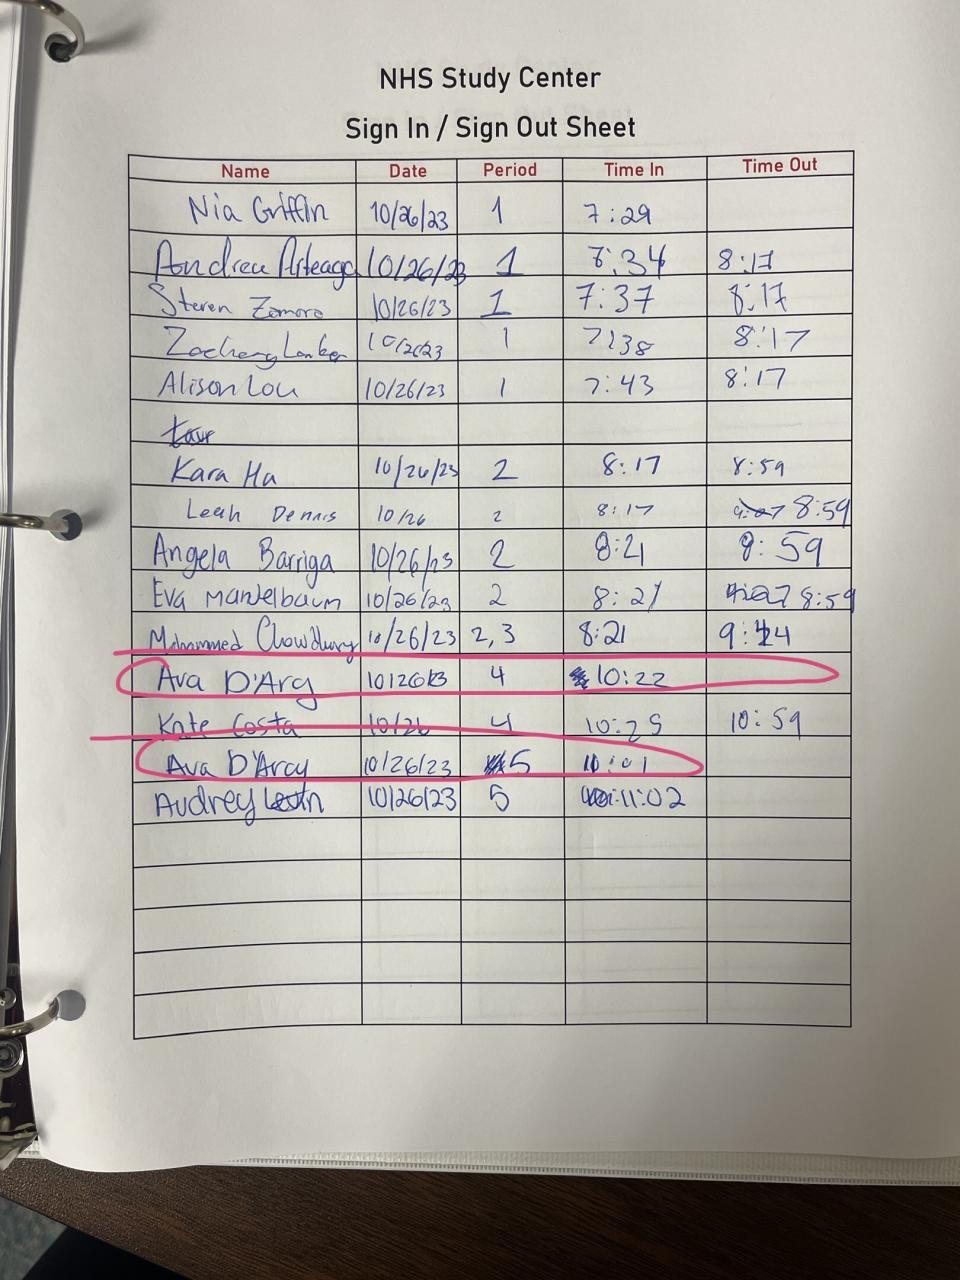 NHS Study Center
Sign In / Sign Out Sheet
Name Date Period Time In Time Out
Nia Griffin 10/26/23 1 7:29
Andrea Arteaga 10/26/23 1 7:34 8:17
Steven Zamora 10/26/23 1 7:37 8:17
Zachery 1 7:38 8:17
Alison Lou 10/26/23 1 7:43 8:17
Kara Ha 10/26/23 2 8:17 8:59
Leah Dennis 10/26 2 8:17 8:59
Angela Barriga 10/26/23 2 8:21 8:59
Eva Mandelbaum 10/26/23 2 8:21 8:59
Mohammed Chowdhury 10/26/23 2,3 8:21 9:44
Ava D'Arcy 10/26/23 4 10:22
Kate Costa 10/26 4 10:25 10:59
Ava D'Arcy 10/26/23 5
Audrey 10/26/23 5 11:02